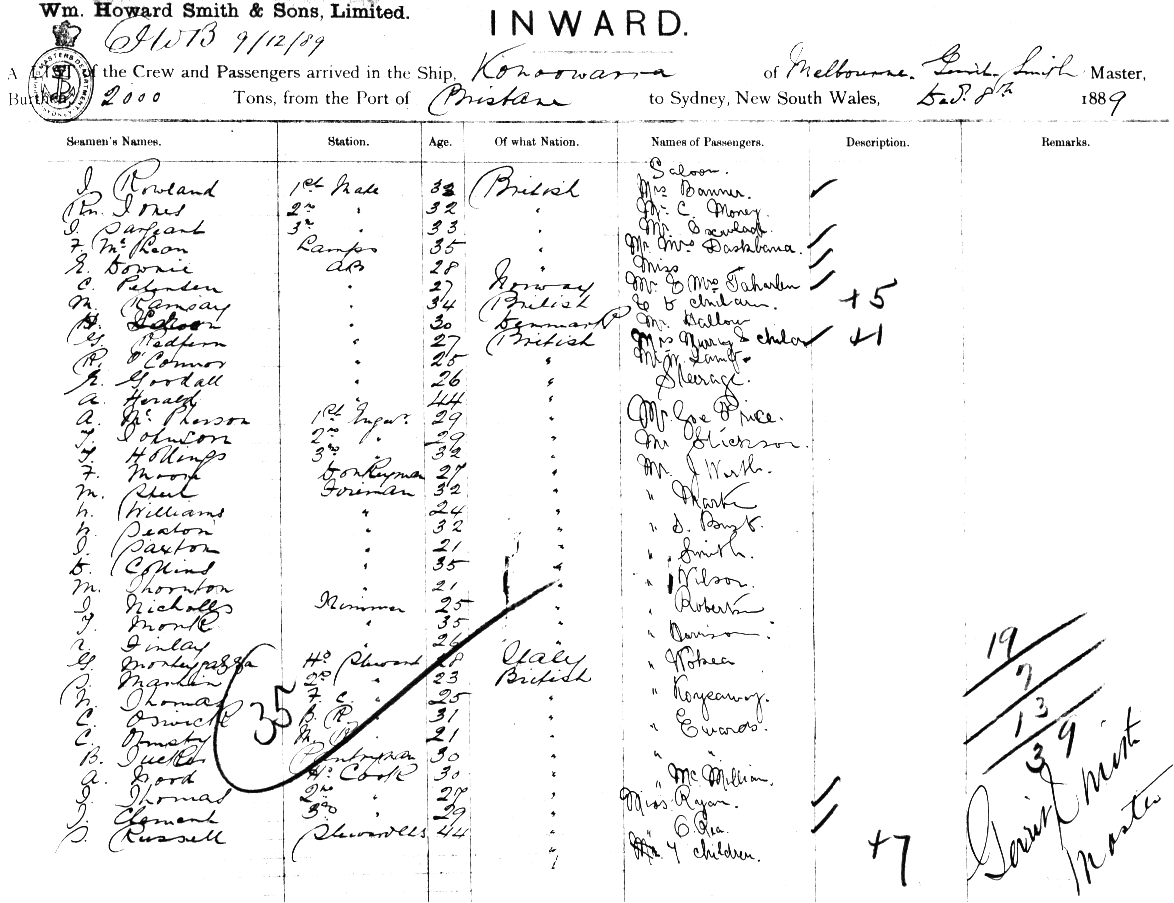 Wm. Howard Smith & Sons, Limited.
INWARD.
9/12/89
A LIST of the Crew and Passengers arrived in the Ship, Konoowarra of Melbourne. Smith Master,
Burthen 2000 Tons, from the Port of Brisbane to Sydney, New South Wales, Decr. 8th 1889
Seamen's Names. Station. Age. Of what Nation. Names of Passengers. Description. Remarks.
Saloon.
J. Rowland 1st Mate 32 British Mrs Banner
Jones 2nd " 32 " Mr C. Money
J. Sargeant 3rd " 33 " Mr
F. McLean Lamps 35 " Mr Mrs
E. Downie AB 28 " Miss
C. Petersen " 27 Norway Mr & Mrs
M. Ramsay " 34 British & 5 children. +5
" 30 Denmark Mr Hallow
G. Redfern " 27 British Mrs Murray & child +1
R. O'Connor " 25 " Mr W. Lamb
E. Goodall " 26 " Steerage.
A. Herald " 44 "
A. McPherson 1st Engnr. 29 " Mr Geo Price.
T. Johnson 2nd " 29 " Mr
T. Hollings 3rd " 32 "
F. Moore Donkeyman 27 " Mr. J Wirth.
M. Foreman 32 "
Williams " 24 " "
Seaton " 32 " "
J. Saxton " 21 "
D. Collins " 35 " " Smith.
M. Thornton " 21 " " Wilson.
J. Nicholls Trimmer 25 " " Roberts
T. Monk " 35 "
Finlay " 26 " " Davison
G. Hd Steward 28 Italy "
S. Martin 2nd " 23 British
Thomas F. C. " 25 " "
C. Oswick B. R. " 31 " " Ewards.
C. Ormsby 21 "
B. Tucker Pantryman 30 " " "
A. Wood Hd Cook 30 " " McMillian.
J. Thomas 2nd " 27 " Miss Ryan.
J. Clement 3rd " 29 " " C. Rea.
S. Russell Stewardess 44 " 7 children. +7
35
19
7
13
39
Smith
Master